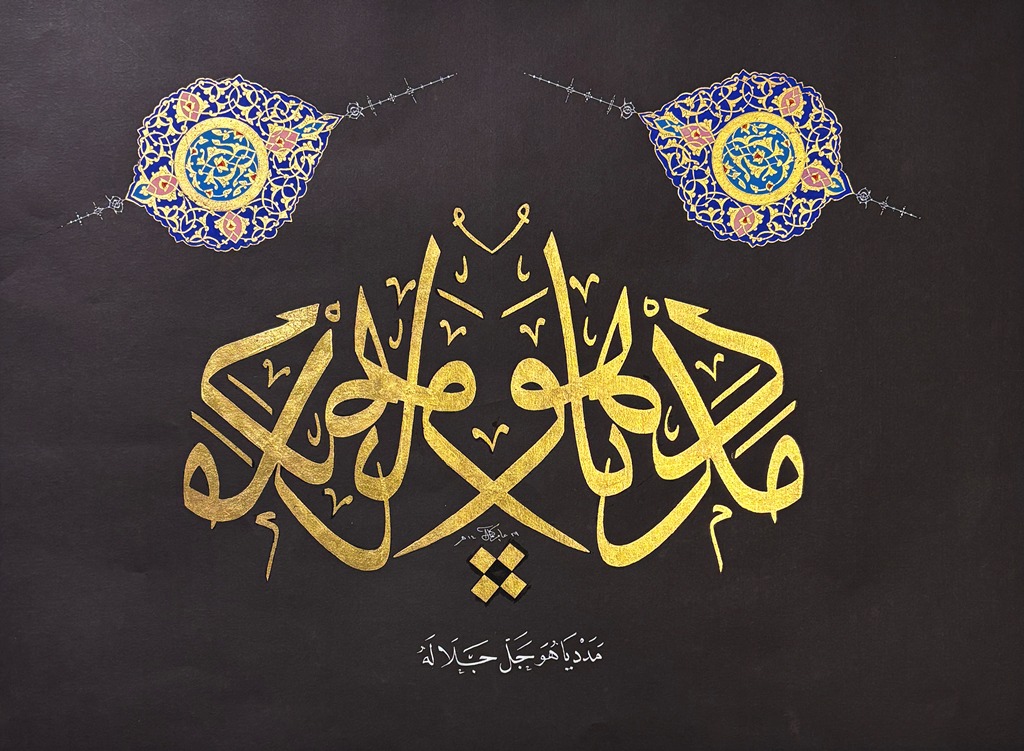 مدد يا هو
مَدَدْ يَا هُوَ جَلَّ جَلَالَهُ